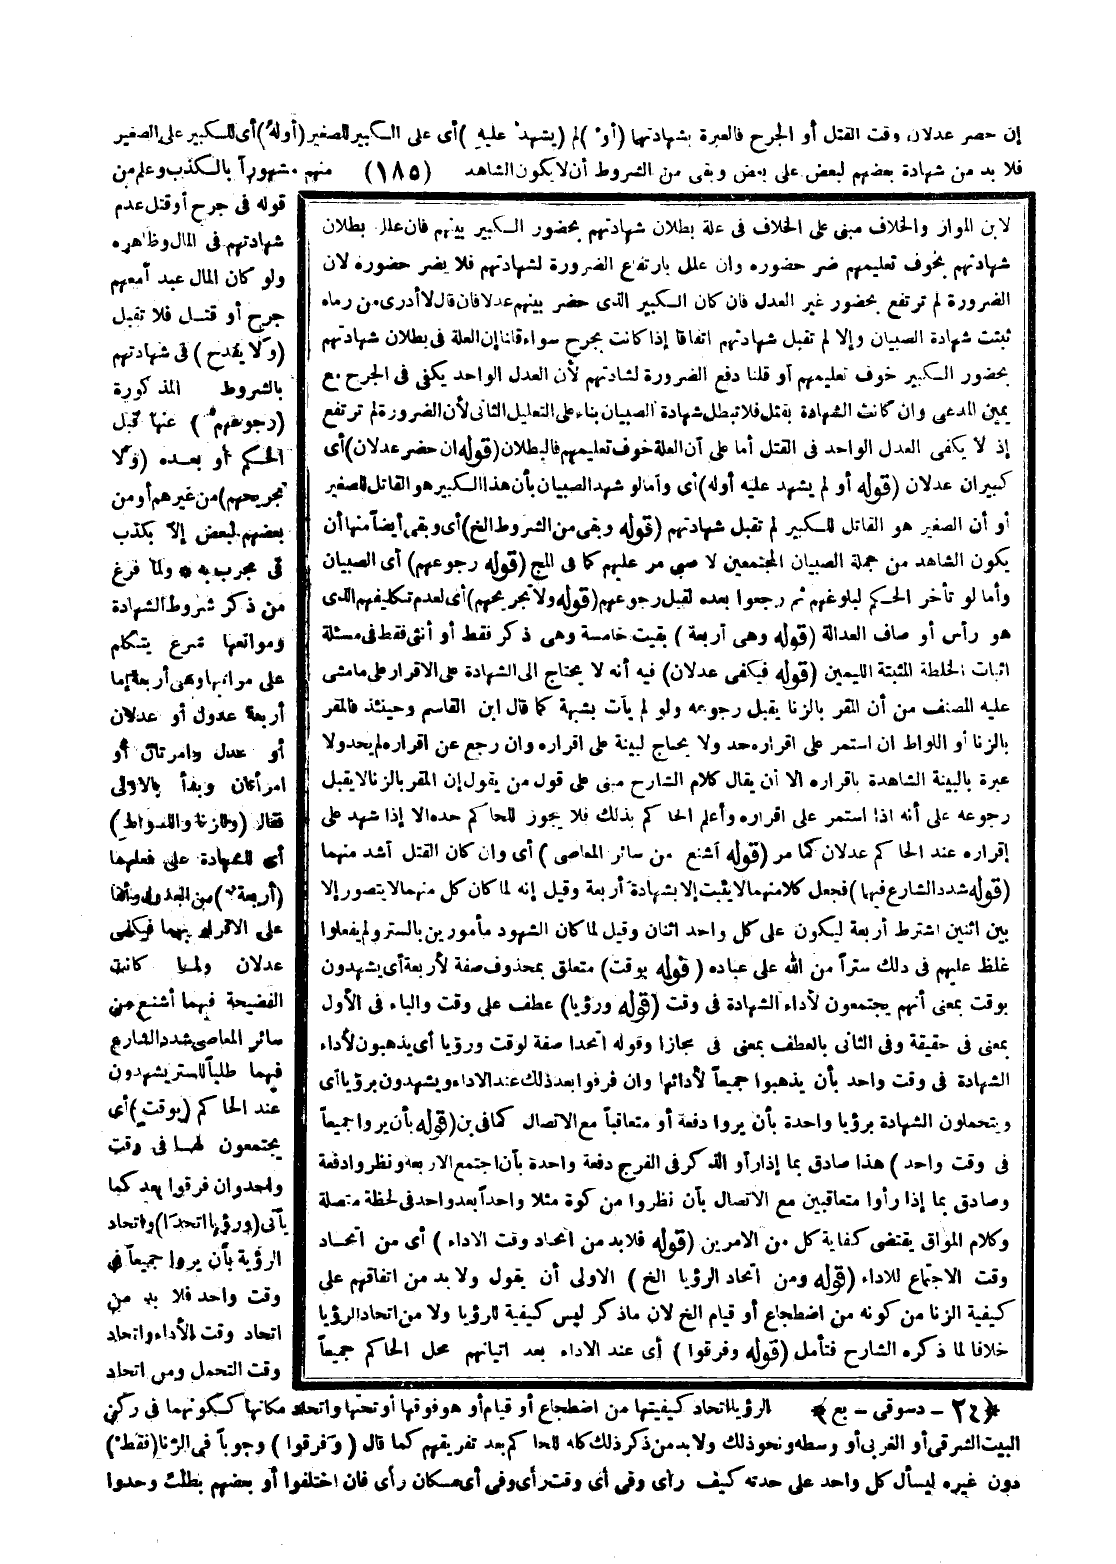 إن حصر عدلان وقت القتل أو الجرح فالعبرة بشهادتها (أو) لم (يشهد عليه) أى على الكبير للصغير (أوله) أى للكبير على الصغير
فلا بد من شهادة بعضهم لبعض على بعض وبقى من الشروط أن لا يكون الشاهد (١٨٥) منهم مشهوراً بالكذب وعلم من
قوله فى جرح أو قتل عدم
شهادتهم فى المال وظاهره
ولو كان المال عبد أمعهم
جرح أو قتل فلا تقبل
(ولا يقدح) فى شهادتهم
بالشروط المذكورة
(رجوعهم) عنها قبل
الحكم أو بعده (ولا
تجريحهم) من غيرهم أو من
بعضهم لبعض إلا بكذب
فى مجرب به * ولما فرغ
من ذكر شروط الشهادة
وموانعها شرع يتكلم
على مراتبها وهى أربعة إما
أربعة عدول أو عدلان
أو عدل وامرتان أو
امرأتان وبدأ بالاولى
فقال (وللزنا واللواط)
أى للشهادة على فعلهما
(أربعة) من العدول وأما
على الاقرار بهما فيكفى
عدلان ولما كانت
الفضيحة فيهما أشنع من
سائر المعاصى شدد الشارع
فيهما طلباً للستر يشهدون
عند الحاكم (بوقت) أى
يجتمعون لها فى وقت
واحد وان فرقوا بعد كما
يأتى (ورؤيا اتحدا) واتحاد
الرؤية بأن يروا جميعاً فى
وقت واحد فلا بد من
اتحاد وقت الأداء واتحاد
وقت التحمل ومن اتحاد
لابن المواز والخلاف مبنى على الخلاف فى علة بطلان شهادتهم بحضور الكبير بينهم فان علل بطلان
شهادتهم بخوف تعليمهم ضر حضوره وان علل بارتفاع الضرورة لشهادتهم فلا يضر حضوره لان
الضرورة لم ترتفع بحضور غير العدل فان كان الكبير الذى حضر بينهم عدلا فان قال لا أدرى من رماه
ثبتت شهادة الصبيان وإلا لم تقبل شهادتهم اتفاقا إذا كانت بجرح سواء قلنا إن العلة فى بطلان شهادتهم
بحضور الكبير خوف تعليمهم أو قلنا دفع الضرورة لشادتهم لأن العدل الواحد يكفى فى الجرح مع
يمين المدعى وان كانت الشهادة بقتل فلا تبطل شهادة الصبيان بناء على التعليل الثانى لأن الضرورة لم ترتفع
إذ لا يكفى العدل الواحد فى القتل أما على أن العلة خوف تعليمهم فالبطلان (قوله ان حضر عدلان) أى
كبيران عدلان (قوله أو لم يشهد عليه أوله) أى وأما لو شهد الصبيان بأن هذا الكبير هو القاتل للصغير
أو أن الصغير هو القاتل للكبير لم تقبل شهادتهم (قوله وبقى من الشروط الخ) أى وبقى أيضاً منها أن
يكون الشاهد من جملة الصبيان المجتمعين لا صبى مر عليهم كما فى المج (قوله رجوعهم) أى الصبيان
وأما لو تأخر الحكم لبلوغهم ثم رجعوا بعده لقبل رجوعهم (قوله ولا تجريحهم) أى لعدم تكليفهم الذى
هو رأس أوصاف العدالة (قوله وهى أربعة) بقيت خامسة وهى ذكر فقط أو أنثى فقط فى مسئلة
اثبات الخلطة المثبتة لليمين (قوله فيكفى عدلان) فيه أنه لا يحتاج الى الشهادة على الاقرار على ما مشى
عليه المصنف من أن المقر بالزنا يقبل رجوعه ولو لم يأت بشبهة كما قال ابن القاسم وحينئذ فالمقر
بالزنا أو اللواط ان استمر على اقراره حد ولا يحتاج لبينة على اقراره وان رجع عن اقراره لم يحد ولا
عبرة بالبينة الشاهدة باقراره الا أن يقال كلام الشارح مبنى على قول من يقول إن المقر بالزنا لا يقبل
رجوعه على أنه اذا استمر على اقراره وأعلم الحاكم بذلك فلا يجوز للحاكم حده الا إذا شهد على
إقراره عند الحاكم عدلان كما مر (قوله أشنع من سائر المعاصى) أى وان كان القتل أشد منهما
(قوله شدد الشارع فيها) فجعل كلا منهما لا يثبت إلا بشهادة أربعة وقيل إنه لما كان كل منهما لا يتصور إلا
بين اثنين اشترط أربعة ليكون على كل واحد اثنان وقيل لما كان الشهود مأمورين بالستر ولم يفعلوا
غلظ عليهم فى ذلك ستراً من الله على عباده (قوله بوقت) متعلق بمحذوف صفة لأربعة أى يشهدون
بوقت بمعنى أنهم يجتمعون لأداء الشهادة فى وقت (قوله ورؤيا) عطف على وقت والباء فى الأول
بمعنى فى حقيقة وفى الثانى بالعطف بمعنى فى مجازا وقوله اتحدا صفة لوقت ورؤيا أى يذهبون لأداء
الشهادة فى وقت واحد بأن يذهبوا جميعاً لأدائها وان فرقوا بعد ذلك عند الاداء ويشهدون برؤيا أى
ويتحملون الشهادة برؤيا واحدة بأن يروا دفعة أو متعاقباً مع الاتصال كما فى بن (قوله بأن يروا جميعاً
فى وقت واحد) هذا صادق بما إذا رأوا الذكر فى الفرج دفعة واحدة بأن اجتمع الاربعه ونظروا دفعة
وصادق بما إذا رأوا متعاقبين مع الاتصال بأن نظروا من كوة مثلا واحداً بعد واحد فى لحظة متصلة
وكلام المواق يقتضى كفاية كل من الامرين (قوله فلا بد من اتحاد وقت الاداء) أى من اتحاد
وقت الاجتماع للاداء (قوله ومن اتحاد الرؤيا الخ) الاولى أن يقول ولا بد من اتفاقهم على
كيفية الزنا من كونه من اضطجاع أو قيام الخ لان ما ذكر ليس كيفية للرؤيا ولا من اتحاد الرؤيا
خلافا لما ذكره الشارح فتأمل (قوله وفرقوا) أى عند الاداء بعد اتيانهم محل الحاكم جميعاً
﴿٢٤ - دسوقى - بع﴾ الرؤيا اتحاد كيفيتها من اضطجاع أو قيام أو هو فوقها أو تحتها واتحاد مكانها ككونهما فى ركن
البيت الشرقى أو الغربى أو وسطه ونحو ذلك ولا بد من ذكر ذلك كله للحاكم بعد تفريقهم كما قال (وفرقوا) وجوباً فى الزنا (فقط)
دون غيره ليسأل كل واحد على حدته كيف رأى وفى أى وقت رأى وفى أى مكان رأى فان اختلفوا أو بعضهم بطلت وحدوا